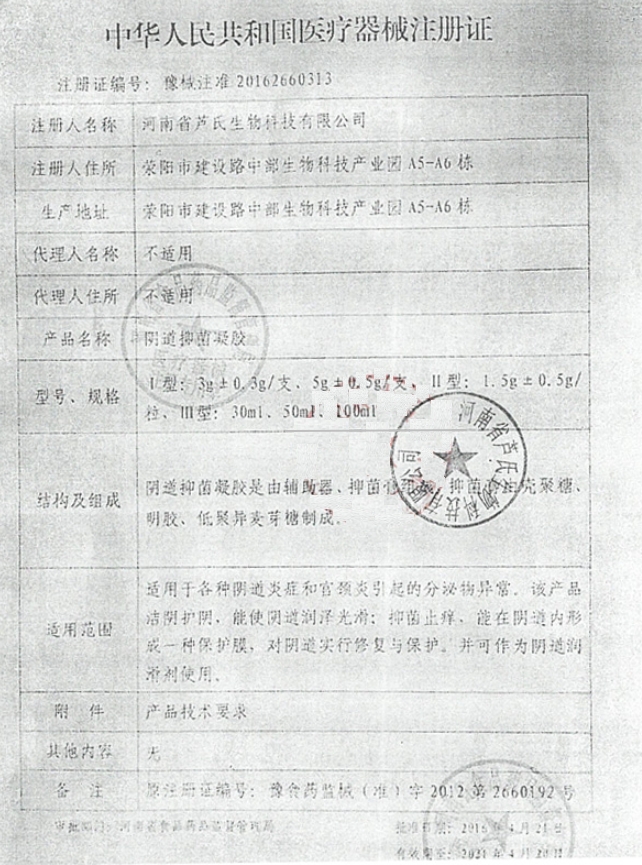 中华人民共和国医疗器械注册证
注册证编号：豫械注准 20162660313
注册人名称 河南省芦氏生物科技有限公司
注册人住所 荥阳市建设路中部生物科技产业园 A5-A6 栋
生产地址 荥阳市建设路中部生物科技产业园 A5-A6 栋
代理人名称 不适用
代理人住所 不适用
产品名称 阴道抑菌凝胶
型号、规格 I 型：3g±0.3g/支、5g±0.5g/支、II 型：1.5g±0.5g/
粒、III型：30ml、50ml、100ml
河南省芦氏生物科技有限公司
结构及组成 阴道抑菌凝胶是由辅助器、抑菌 抑菌 壳聚糖、
明胶、低聚异麦芽糖制成。
适用范围 适用于各种阴道炎症和宫颈炎引起的分泌物异常。该产品
洁阴护阴，能使阴道润泽光滑；抑菌止痒，能在阴道内形
成一种保护膜，对阴道实行修复与保护。并可作为阴道润
滑剂使用。
附 件 产品技术要求
其他内容 无
备 注 原注册证编号：豫食药监械（准）字 2012 第 2660192 号
审批部门：河南省食品药品监督管理局 批准日期：2016 年 4 月 21 日
有效期至：2021 年 4 月 20 日